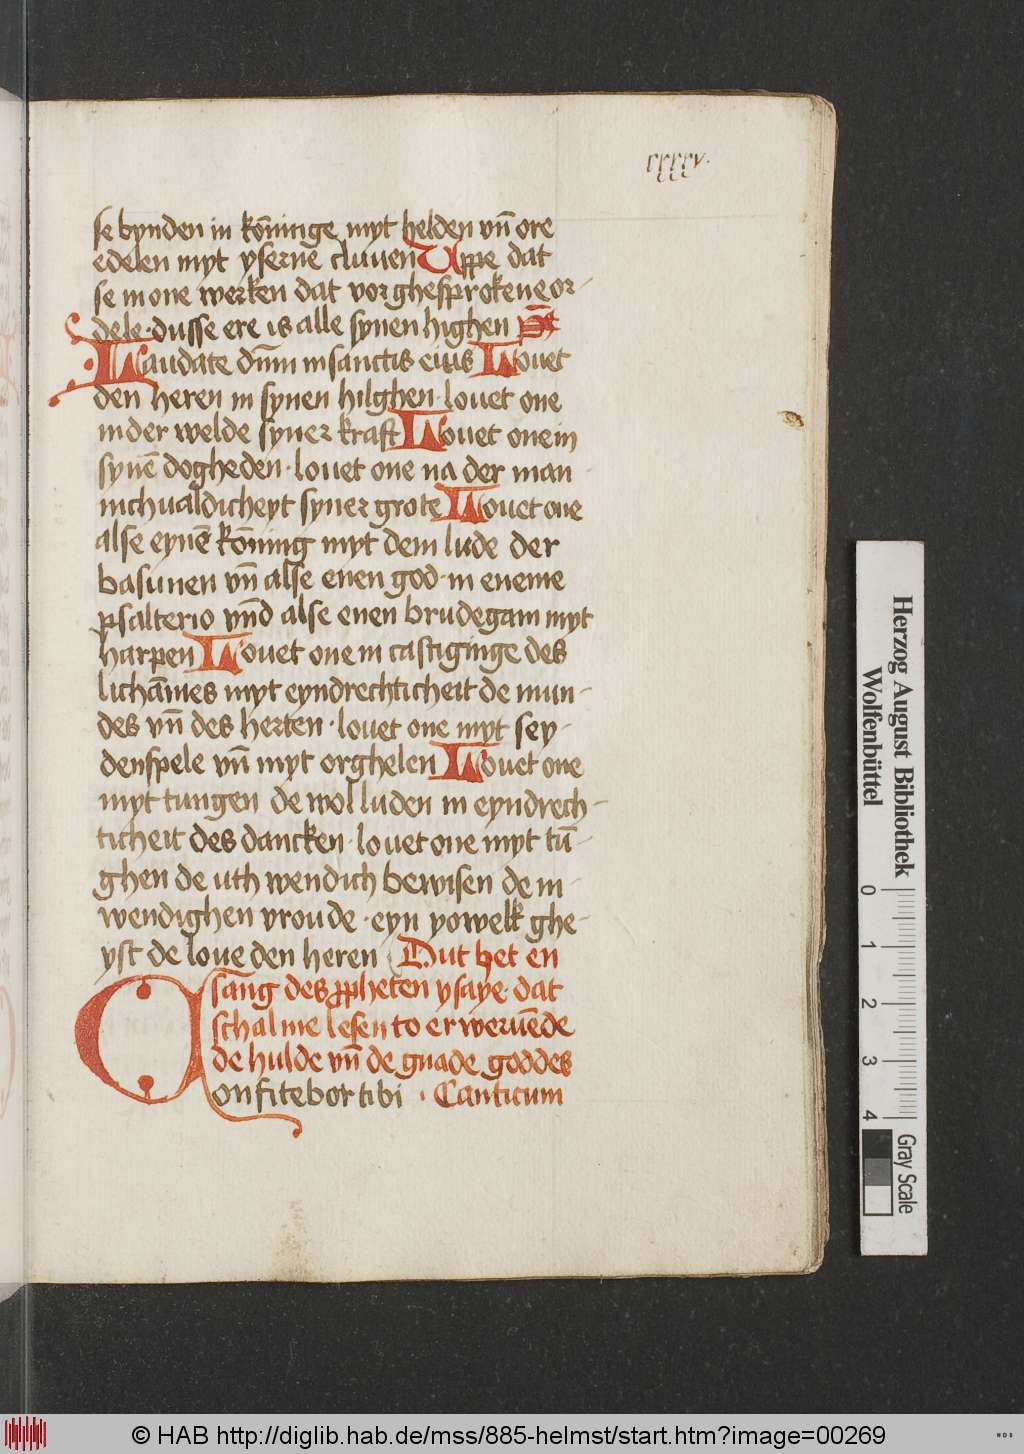 se bynden in kōninge myt helden vn̄ ore
edelen myt yserne cluuen Uppe dat
se in one werken dat vor ghesprokene or-
dele · dusse ere is alle synen highen
Laudate dn̄m in sanctis eius Louet
den heren in synen hilghen · louet one
in der welde syner kraft Louet one in
synē dogheden · louet one na der man
nichualdicheyt syner grote Louet one
alse eynē kōning myt dem lude der
basunen vn̄ alse enen god · in eneme
psalterio vn̄d alse enen brudegam myt
harpen Louet one in castiginge des
lichāmes myt eyndrechticheit de mun-
des vn̄ des herten · louet one myt sey-
denspele vn̄ myt orghelen Louet one
myt tungen de wol luden in eyndrech-
ticheit des dancken · louet one myt tū-
ghen de uth wendich bewisen de in-
wendighen vroude · eyn yowelk ghe-
yst de loue den heren Dut het en
sāng des ꝓpheten ysaye · dat
schal me lesen to erweruēde
de hulde vn̄ de gnade goddes
Confitebor tibi · Canticum
Herzog August Bibliothek
Wolfenbüttel
0 1 2 3 4
Gray Scale
© HAB http://diglib.hab.de/mss/885-helmst/start.htm?image=00269